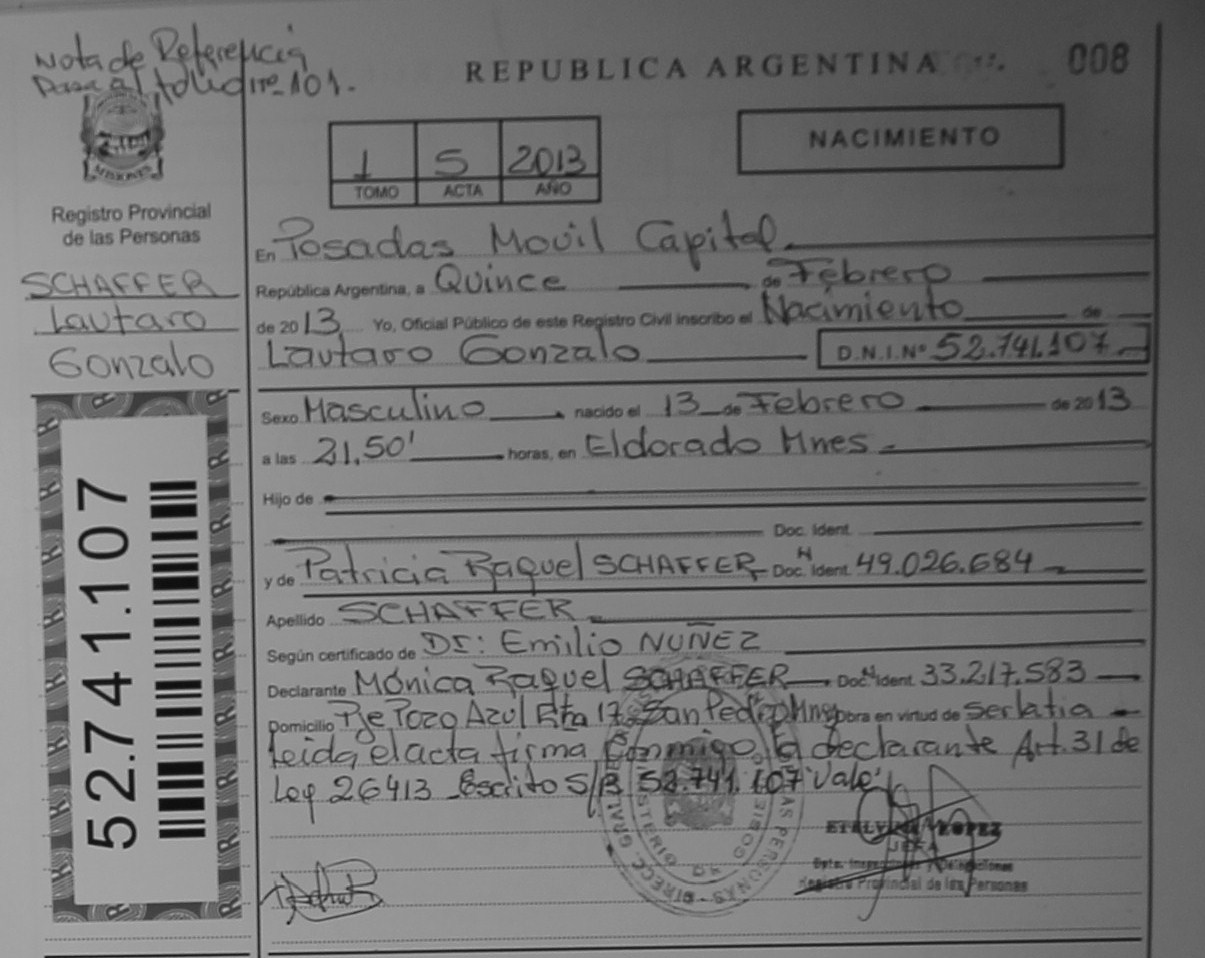 Nota de Referencia
Pasa al folio nro 101.
REPUBLICA ARGENTINA
008
MISIONES
Registro Provincial
de las Personas
SCHAFFER
Lautaro
Gonzalo
52.741.107
1 5 2013
TOMO ACTA AÑO
NACIMIENTO
En Posadas Movil Capital
República Argentina, a Quince de Febrero
de 2013 Yo, Oficial Público de este Registro Civil inscribo el Nacimiento de
Lautaro Gonzalo D.N.I.Nº 52.741.107
Sexo Masculino nacido el 13 de Febrero de 2013
a las 21,50' horas, en Eldorado Mnes
Hijo de
Doc. Ident.
y de Patricia Raquel SCHAFFER Doc. Ident. 49.026.684
Apellido SCHAFFER
Según certificado de Dr: Emilio NUÑEZ
Declarante Mónica Raquel SCHAFFER Doc. Ident. 33.217.583
Domicilio Pje Pozo Azul Rta 17 San Pedro Mnes obra en virtud de ser la tia
leida el acta firma conmigo la declarante Art. 31 de
Ley 26413 Escrito S/B 52.741.107 Vale
LOPEZ
JEFA
Dpto. Delegaciones
Registro Provincial de las Personas